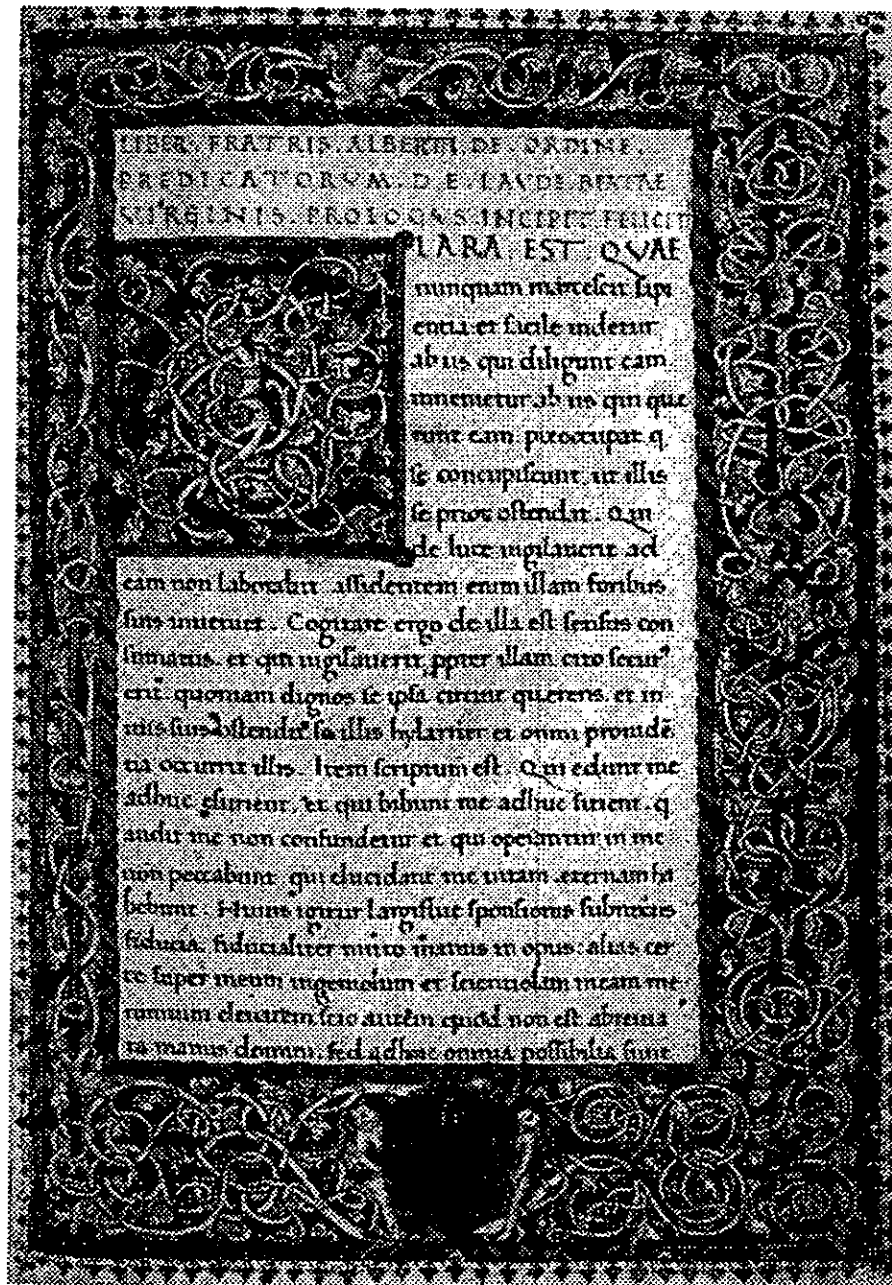 LIBER. FRATRIS. ALBERTI. DE. ORDINE.
PREDICATORVM. DE. LAVDE. BEATAE
VIRGINIS. PROLOGVS. INCIPIT FELICIT
CLARA. EST. QVAE
nunquam marcescit sapi
entia et facile uidetur
ab iis qui diligunt eam
inuenietur ab iis qui que
runt eam preoccupat q
se concupiscunt. ut illis
se prior ostendat. Q ui
de luce uigilauerit ad
eam non laborabit assidentem enim illam foribus
suis inueniet. Cogitare ergo de illa est sensus con
sumatus. et qui uigilauerit ppter illam cito secur⁹
erit. quoniam dignos se ipsa circuit querens. et in
uiis suis ostendit se illis hylariter et omni prouidē
tia occurrit illis. Item scriptum est. Q ui edunt me
adhuc esurient. et qui bibunt me adhuc sitient. q
audit me non confundetur et qui operantur in me
non peccabunt qui elucidant me uitam aeternam ha
bebunt. Huius igitur largifluae sponsionis
fiducia. fiducialiter mitto manus in opus: alias cer
te super meum ingeniolum et scientiolam meam me
eleuatum. scio autem quod non est abreuia
ta manus domini. sed adhuc omnia possibilia sunt